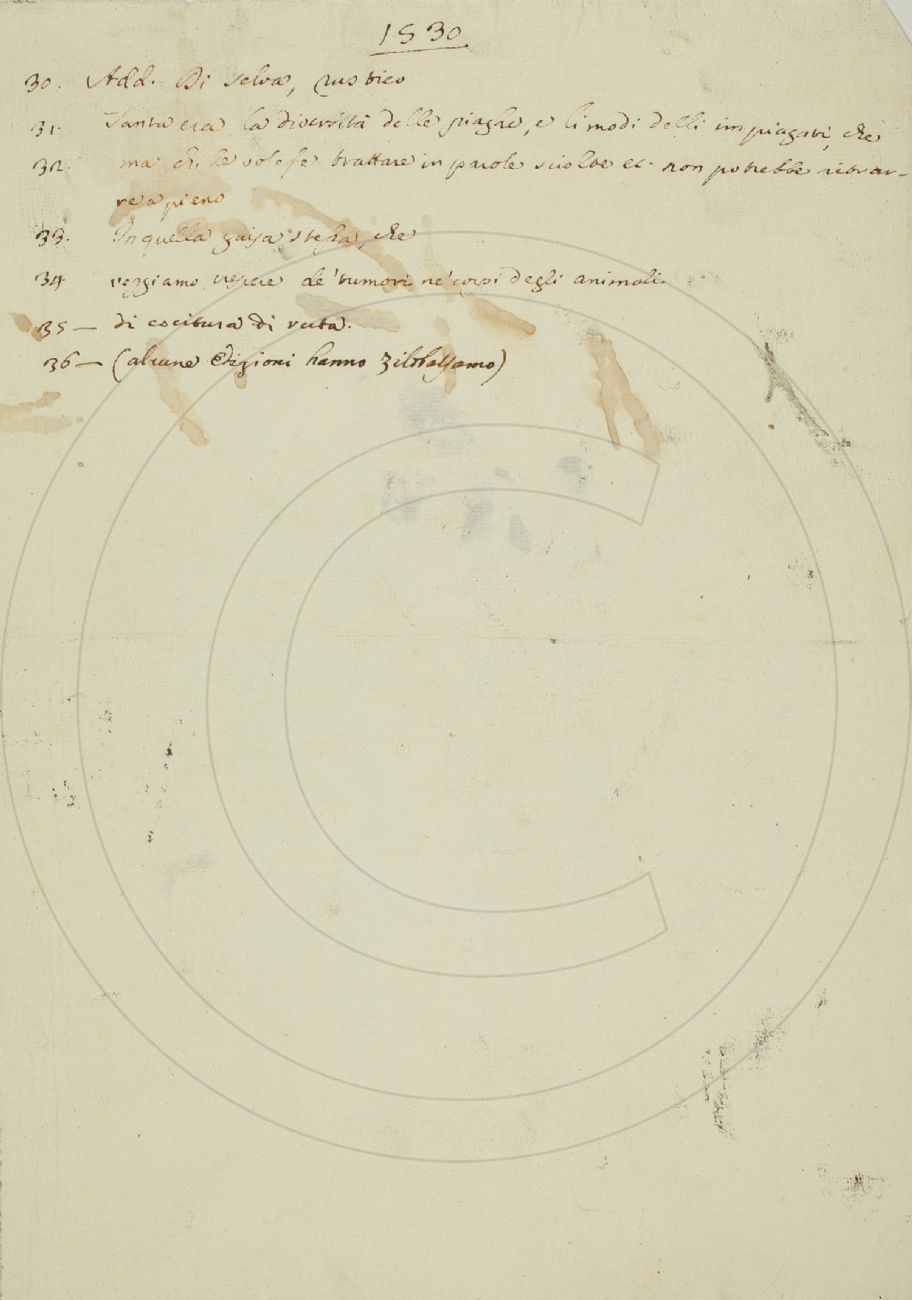 1530
30. Add. Di selva, rustico
31. Tanta era la diversità delle piaghe, e li modi delli impiagati, che
32. ma chi le volesse trattare in parole sciolte ec. non potrebbe ritrar-
re a pieno
33. In quella guisa stessa, che
34 veggiamo uscire de' tumori ne' corpi degli animali.
35 — di cocitura di ruta.
36 — (alcune Edizioni hanno Zilobalsamo)